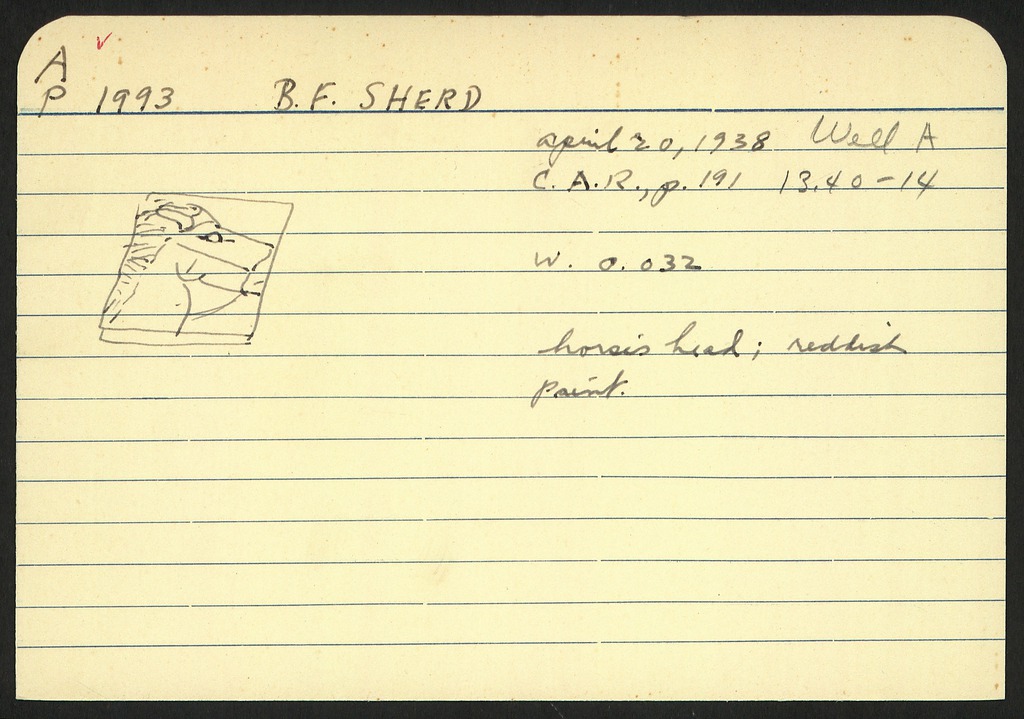 A
P 1993 B.F. SHERD
april 20, 1938 Well A
C.A.R., p. 191 13.40-14
W. 0.032
horse's head; reddish
paint.